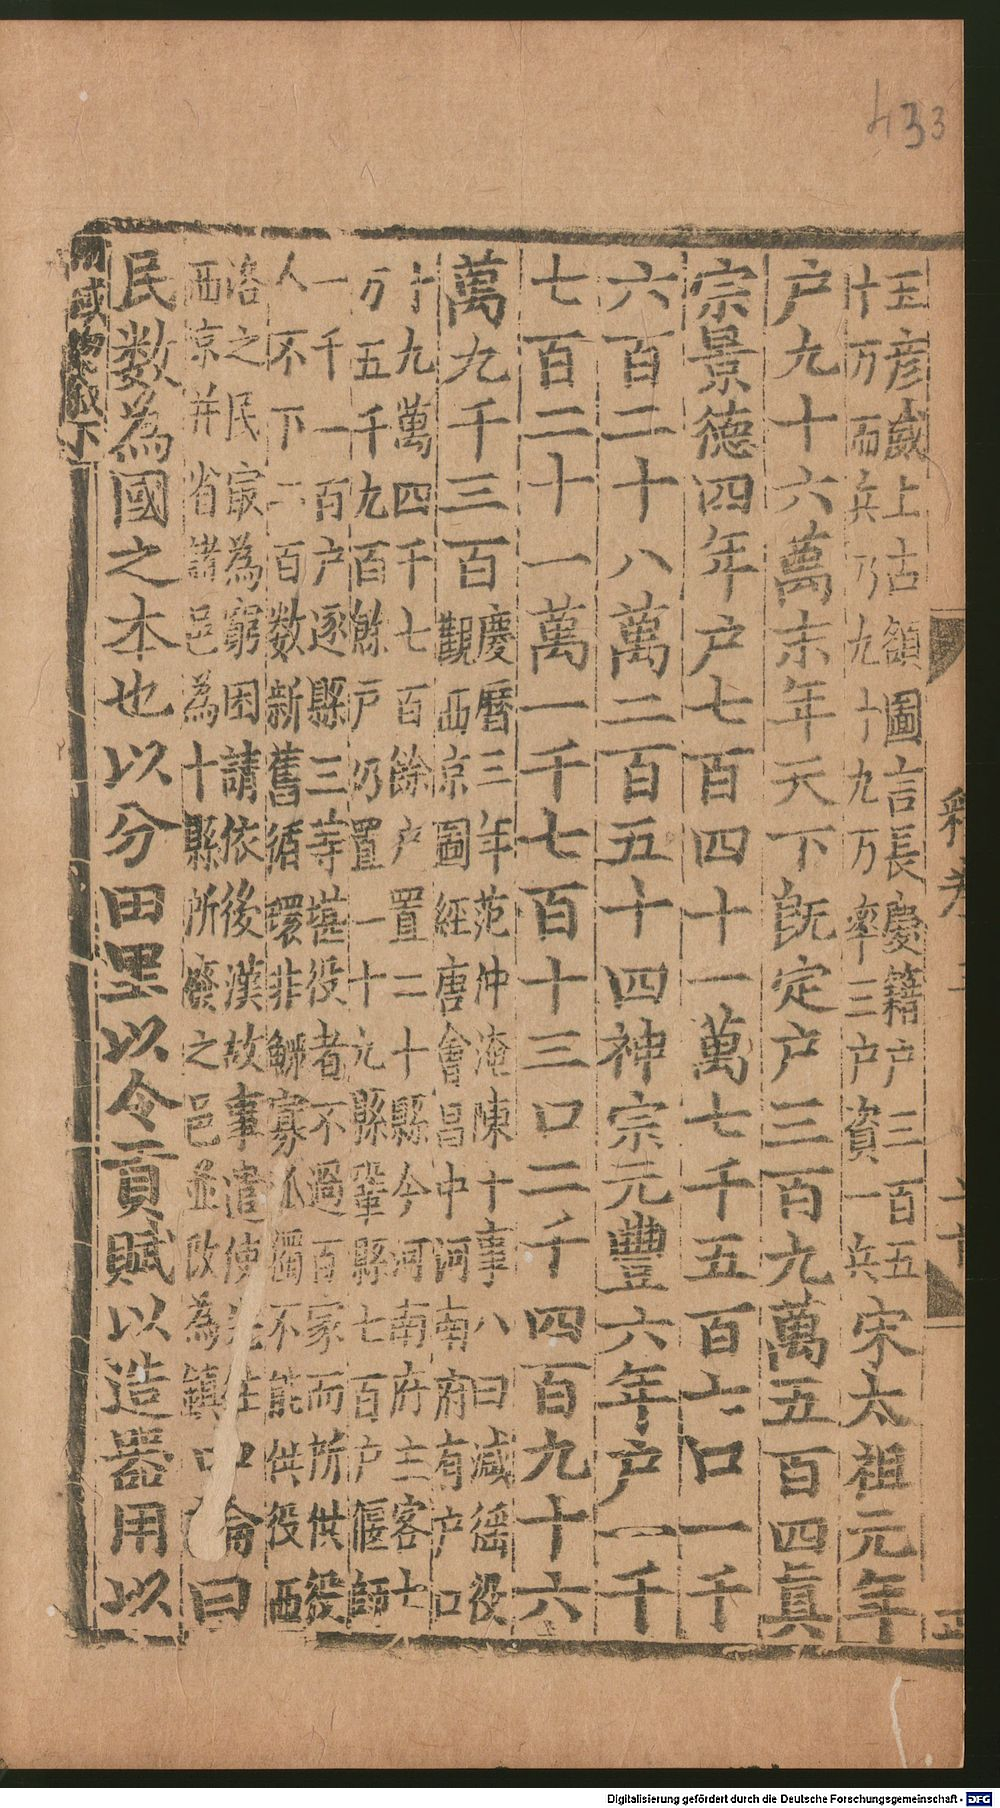 433
王彦威上古領圖言長慶籍户三百五
十万而兵乃九十九万率三户資一兵
宋太祖元年
户九十六萬末年天下旣定户三百九萬五百四眞
宗景德四年户七百四十一萬七千五百七口一千
六百二十八萬二百五十四神宗元豐六年户一千
七百二十一萬一千七百十三口二千四百九十六
萬九千三百
慶曆三年范仲淹陳十事八曰减徭役
觀西京圖經唐會昌中河南府有户口
十九萬四千七百餘户置二十縣今河南府主客七
万五千九百餘戸仍置一十九縣鞏縣七百户偃師
一千一百户逐縣三等堪役者不過百家而所供役
人不下二百数新舊循環非鰥寡孤獨不能供役西
洛之民寂為窮困請依後漢故事遣使先往
西京并省諸邑為十縣所廢之邑並改為鎮
論曰
民数為國之本也以分田里以令貢賦以造器用以
下
Digitalisierung gefördert durch die Deutsche Forschungsgemeinschaft - DFG